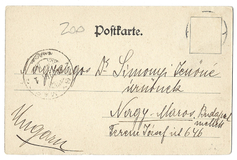 200
Postkarte.
Nagyságos Dr Simonyi Jenőné
úrnőnek
Nagy-Maros, Budapest
mellett
Ferenc József út 646
Ungarn